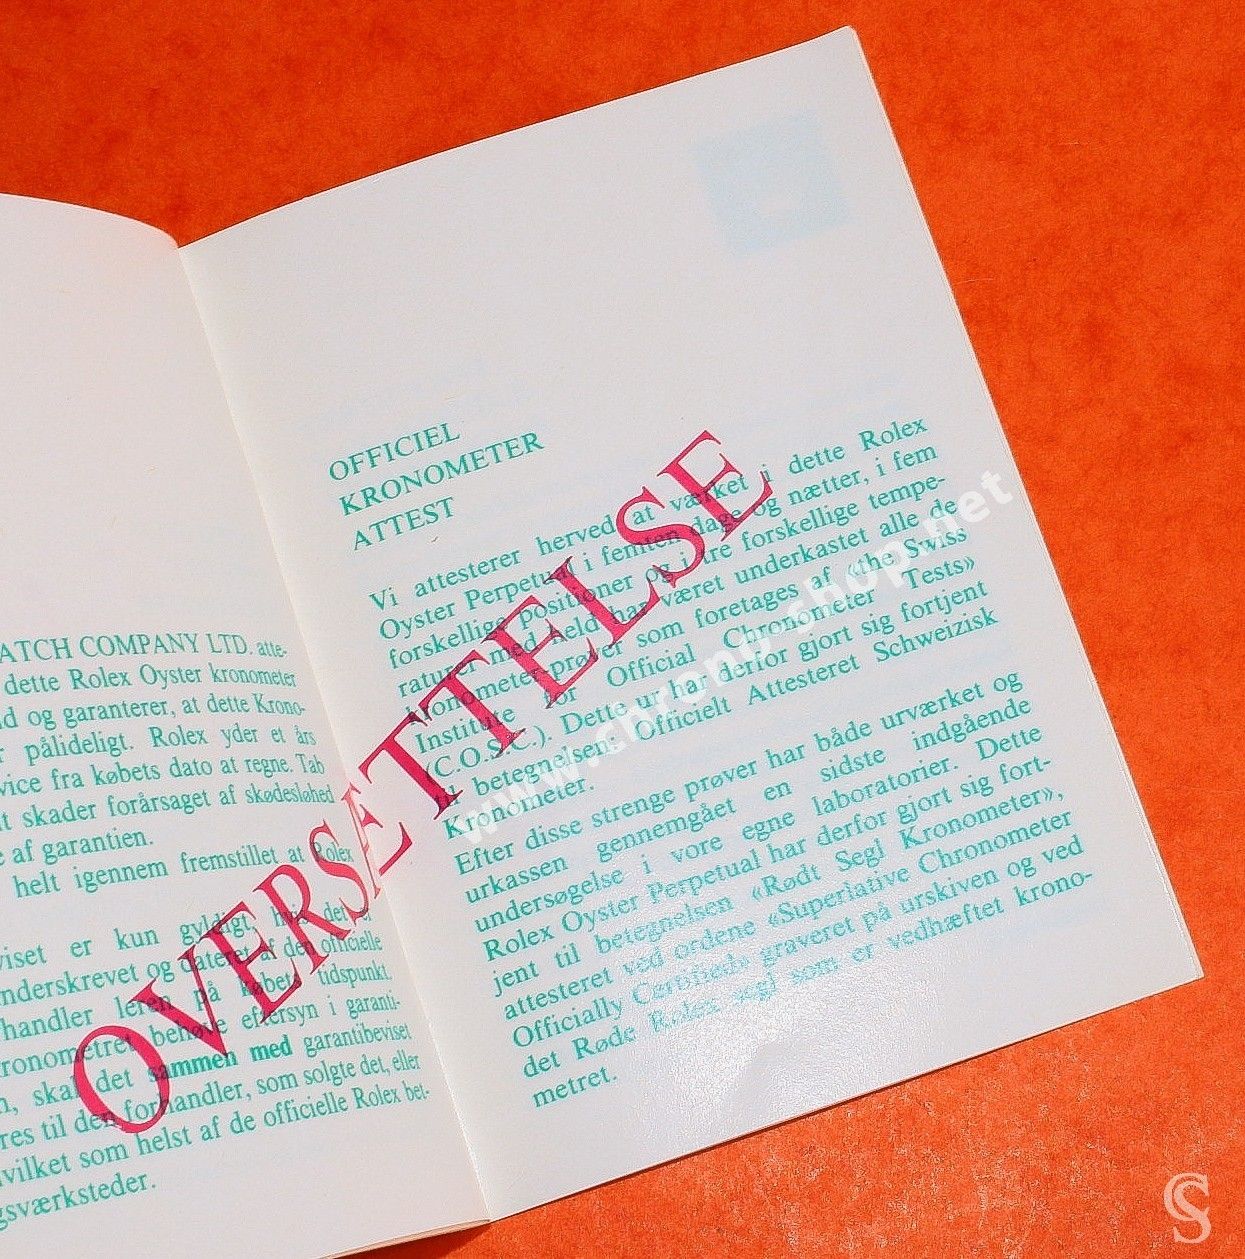 ATCH COMPANY LTD. atte-
dette Rolex Oyster kronometer
og garanterer, at dette Krono-
pålideligt. Rolex yder et års
vice fra købets dato at regne. Tab
skader forårsaget af skødesløshed
af garantien.
helt igennem fremstillet at Rolex
viset er kun gyldigt, hvis det er
nderskrevet og dateret af den officielle
handler leren på købets tidspunkt.
ronometret behøve eftersyn i garanti-
skal det sammen med garantibeviset
res til den forhandler, som solgte det, eller
vilket som helst af de officielle Rolex bet-
gsværksteder.
OFFICIEL
KRONOMETER
ATTEST
Vi attesterer herved at værket i dette Rolex
Oyster Perpetual i femten dage og nætter, i fem
forskellige positioner og i tre forskellige tempe-
raturer med held har været underkastet alle de
kronometer-prøver som foretages af «the Swiss
Institute for Official Chronometer Tests»
(C.O.S.C.). Dette ur har derfor gjort sig fortjent
betegnelsen: Officielt Attesteret Schweizisk
Kronometer.
Efter disse strenge prøver har både urværket og
urkassen gennemgået en sidste indgående
undersøgelse i vore egne laboratorier. Dette
Rolex Oyster Perpetual har derfor gjort sig fort-
jent til betegnelsen «Rødt Segl Kronometer»,
attesteret ved ordene «Superlative Chronometer
Officially Certified» graveret på urskiven og ved
det Røde Rolex segl som er vedhæftet krono-
metret.
OVERSÆTTELSE
www.chronoshop.net